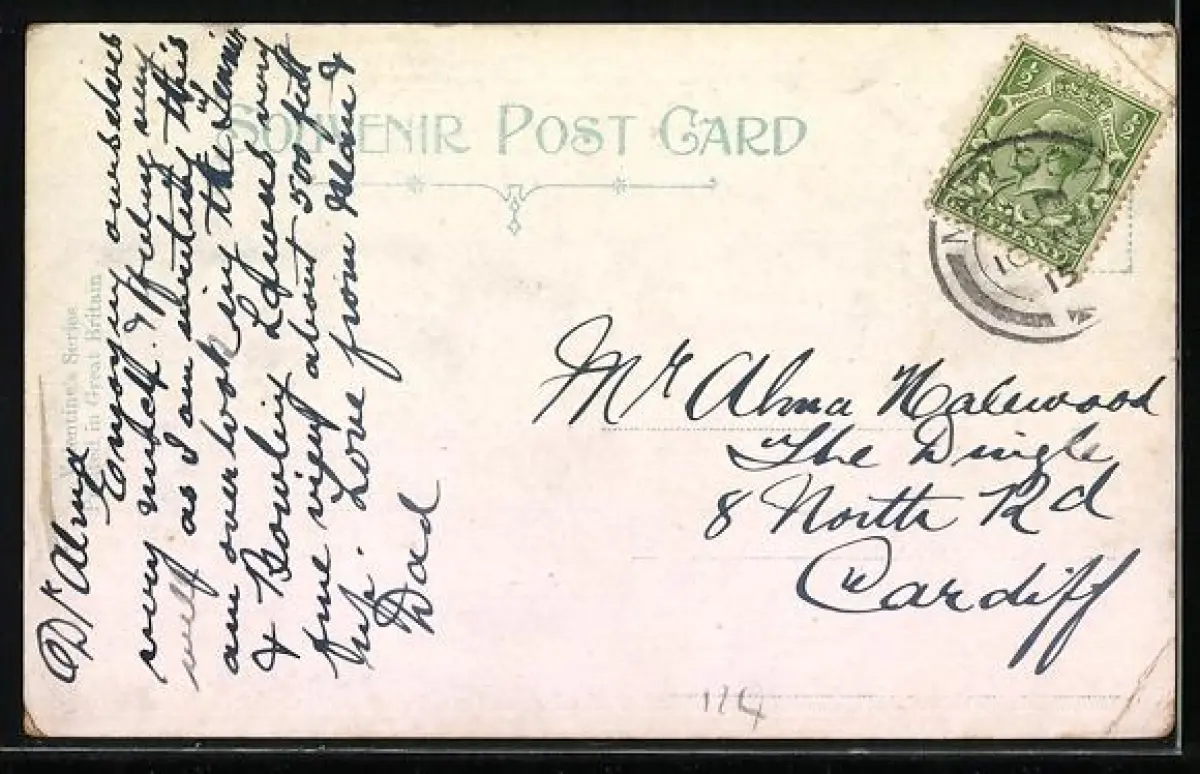 SOUVENIR POST CARD
Valentine's Series
Printed in Great Britain
Dr Alma
Enjoying ourselves
very much & feeling very
well as I am writing this
am overlooking the Tennis
& Bowling Lawns very
fine view about 500 feet
up. Love from Mam &
Dad
½ ½
HALFPENNY
Mr Alma Halewood
The Dingle
8 North Rd
Cardiff
114